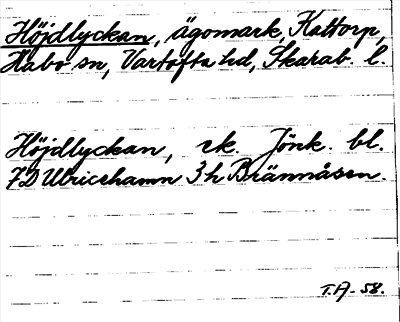 Höjdlyckan, ägomark, Kattorp,
Habo sn, Vartofta hd, Skarab. l.
Höjdlyckan, ek. Jönk. bl.
7D Ulricehamn 3h Brännåsen.
T.A-58.